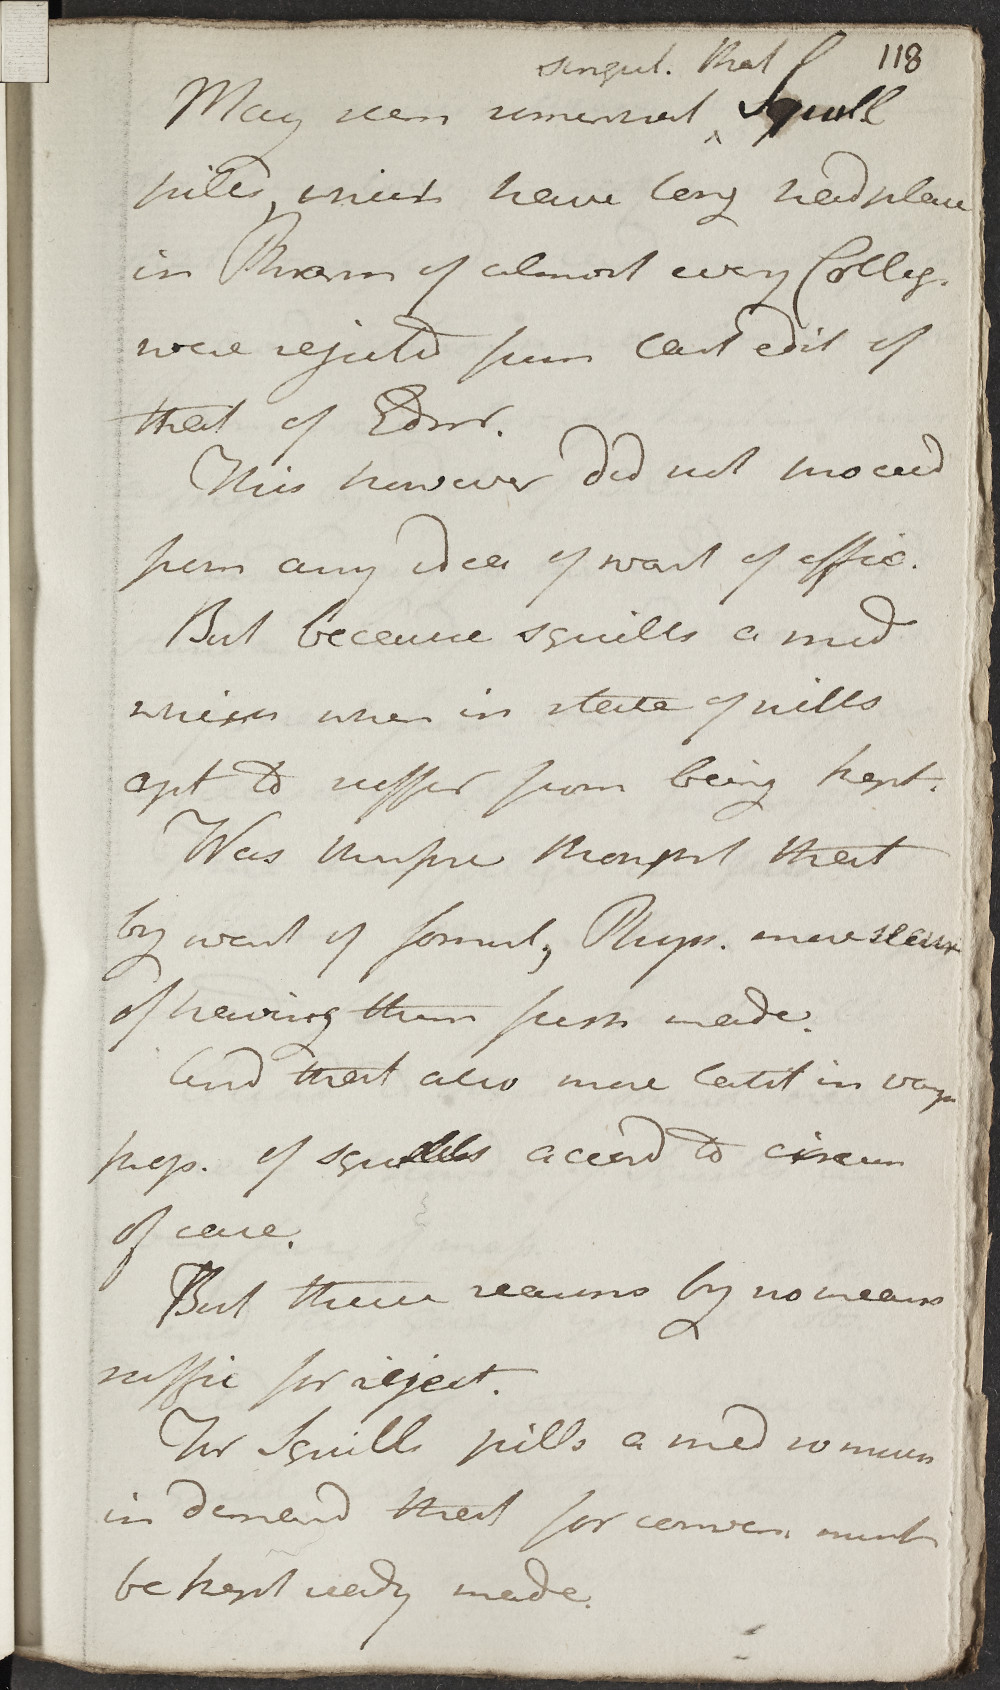 118
singul. that
May seem somewhat Squill
pills, which have long had place
in Pharm of almost every Colleg.
were rejected from last edit of
that of Edinr.
This however did not proceed
from any idea of want of effic.
But because squills a med
which when in state of pills
apt to suffer from being kept.
Was therefore thought that
by want of formul, Phys. more secure
of having them fresh made.
And that also more latit in varyg
prep. of squills accord to circum
of case.
But these reasons by no means
suffic for reject.
For Squills pills a med so much
in demand that for conven. must
be kept ready made.